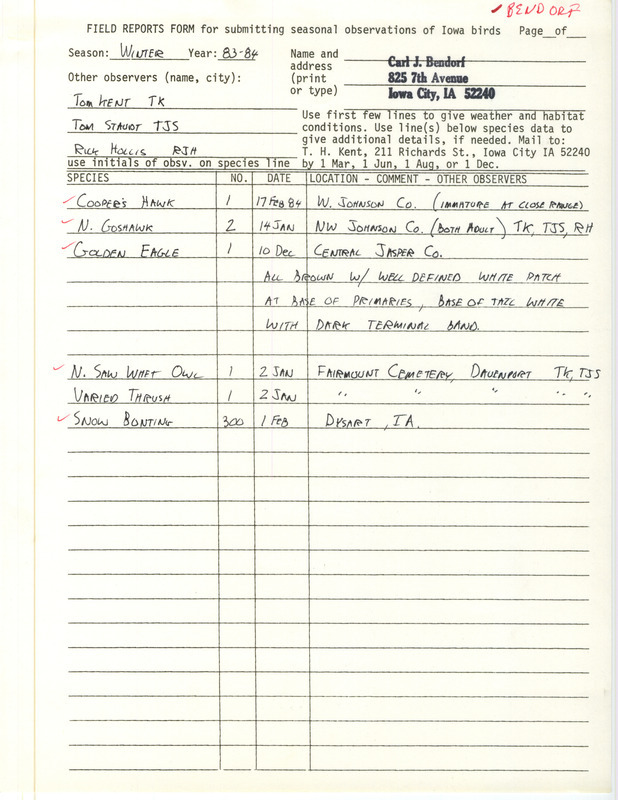 ✓BENDORF
FIELD REPORTS FORM for submitting seasonal observations of Iowa birds Page__of__
Season: WINTER Year: 83-84
Name and address (print or type)
Carl J. Bendorf
825 7th Avenue
Iowa City, IA 52240
Other observers (name, city):
TOM KENT TK
TOM STAUDT TJS
RICK HOLLIS RJH
use initials of obsv. on species line
Use first few lines to give weather and habitat
conditions. Use line(s) below species data to
give additional details, if needed. Mail to:
T. H. Kent, 211 Richards St., Iowa City IA 52240
by 1 Mar, 1 Jun, 1 Aug, or 1 Dec.
SPECIES NO. DATE LOCATION - COMMENT - OTHER OBSERVERS
✓COOPER'S HAWK 1 17 FEB 84 W. JOHNSON CO. (IMMATURE AT CLOSE RANGE)
✓N. GOSHAWK 2 14 JAN NW JOHNSON CO. (BOTH ADULT) TK, TJS, RH
✓GOLDEN EAGLE 1 10 DEC CENTRAL JASPER CO.
ALL BROWN W/ WELL DEFINED WHITE PATCH
AT BASE OF PRIMARIES, BASE OF TAIL WHITE
WITH DARK TERMINAL BAND.
✓N. SAW WHET OWL 1 2 JAN FAIRMOUNT CEMETERY, DAVENPORT TK, TJS
VARIED THRUSH 1 2 JAN " " " " "
✓SNOW BONTING 300 1 FEB DYSART, IA.